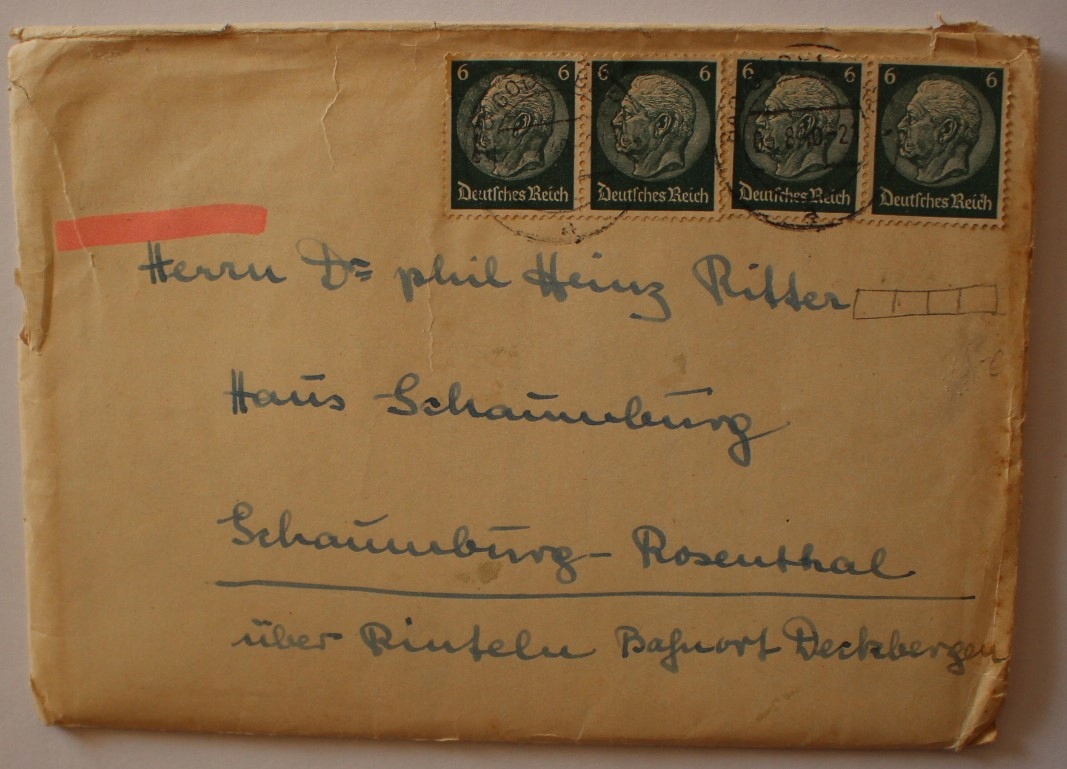 6 6 6 6 6 6 6 6
Deutsches Reich Deutsches Reich Deutsches Reich Deutsches Reich
Herrn Dr phil Heinz Ritter
Haus Schaumburg
Schaumburg-Rosenthal
über Rinteln Bahnort Deckbergen